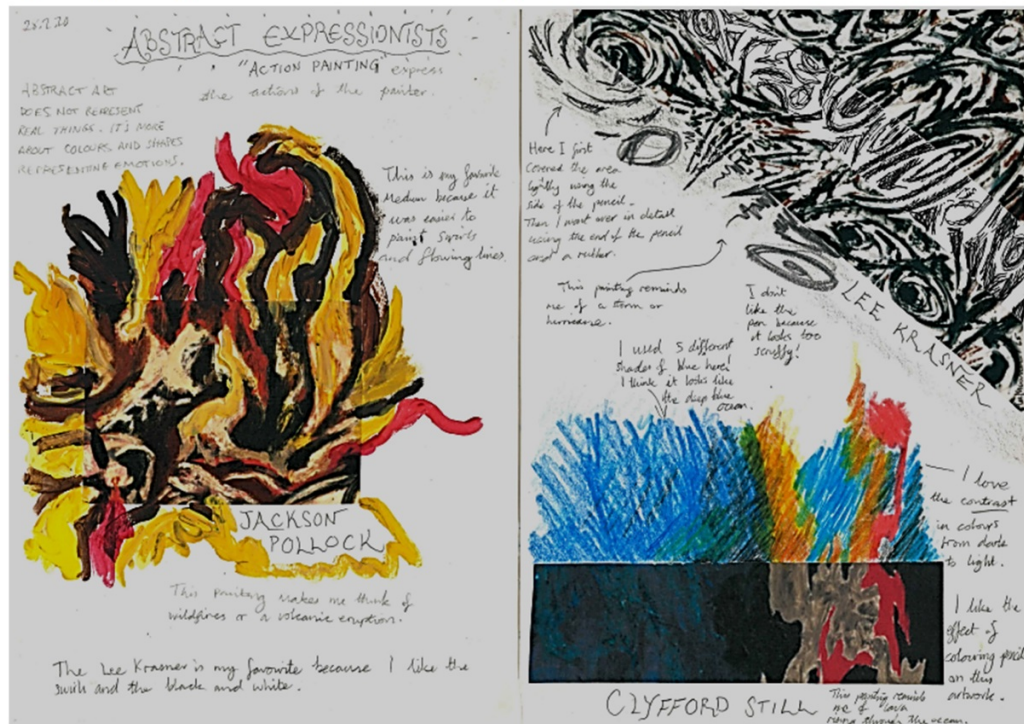 25.2.20
ABSTRACT EXPRESSIONISTS
"ACTION PAINTING" express
the actions of the painter.
ABSTRACT ART
DOES NOT REPRESENT
REAL THINGS. IT'S MORE
ABOUT COLOURS AND SHAPES
REPRESENTING EMOTIONS.
This is my favourite
medium because it
was easier to
paint swirls
and flowing lines.
JACKSON
POLLOCK
This painting makes me think of
wildfires or a volcanic eruption.
The Lee Krasner is my favourite because I like the
swirls and the black and white.
Here I first
covered the area
lightly using the
side of the pencil.
Then I went over in detail
using the end of the pencil
and a rubber.
This painting reminds
me of a storm or
hurricane.
I don't
like the
pen because
it looks too
scruffy!
LEE KRASNER
I used 5 different
shades of blue here!
I think it looks like
the deep blue
ocean.
I love
the contrast
in colours
from dark
to light.
I like the
effect of
colouring pencil
on this
artwork.
CLYFFORD STILL
This painting reminds
me of lava
through the ocean.